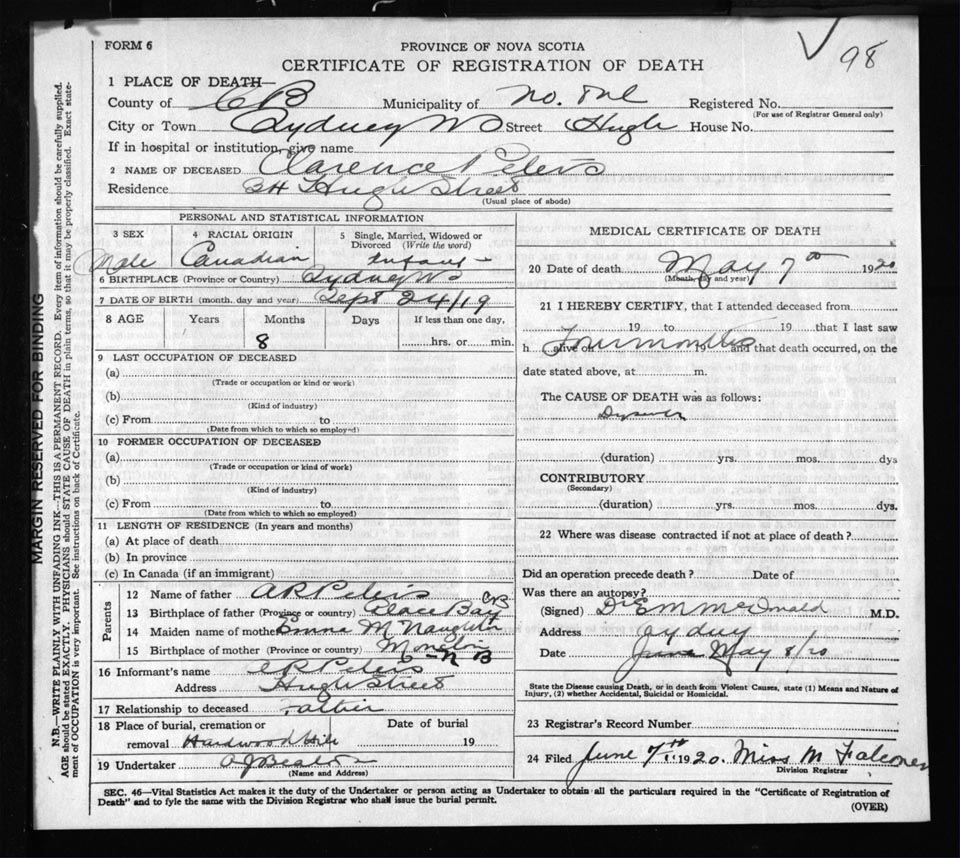 FORM 6
PROVINCE OF NOVA SCOTIA
98
CERTIFICATE OF REGISTRATION OF DEATH
1 PLACE OF DEATH—
County of CB Municipality of No. One Registered No.
(For use of Registrar General only)
City or Town Sydney NS Street Hugh House No.
If in hospital or institution, give name
2 NAME OF DECEASED Clarence Peters
Residence 34 Hugh Street
(Usual place of abode)
PERSONAL AND STATISTICAL INFORMATION
3 SEX 4 RACIAL ORIGIN 5 Single, Married, Widowed or Divorced (Write the word)
Male Canadian Infant
6 BIRTHPLACE (Province or Country) Sydney NS
7 DATE OF BIRTH (month, day and year) Sept 24/19
8 AGE Years Months Days If less than one day,
8 hrs. or min.
9 LAST OCCUPATION OF DECEASED
(a)
(Trade or occupation or kind or work)
(b)
(Kind of industry)
(c) From to
(Date from which to which so employed)
10 FORMER OCCUPATION OF DECEASED
(a)
(Trade or occupation or kind of work)
(b)
(Kind of industry)
(c) From to
(Date from which to which so employed)
11 LENGTH OF RESIDENCE (In years and months)
(a) At place of death
(b) In province
(c) In Canada (if an immigrant)
Parents
12 Name of father A R Peters
13 Birthplace of father (Province or country) Glace Bay CB
14 Maiden name of mother Emma McNaughton
15 Birthplace of mother (Province or country) Moncton N B
16 Informant's name A R Peters
Address Hugh Street
17 Relationship to deceased Father
18 Place of burial, cremation or Date of burial
removal Hardwood Hill 19
19 Undertaker A J Beaton
(Name and Address)
MEDICAL CERTIFICATE OF DEATH
20 Date of death May 7th 1920
(Month, day and year)
21 I HEREBY CERTIFY, that I attended deceased from
19 to 19 that I last saw
h alive on Four months 19 and that death occurred, on the
date stated above, at m.
The CAUSE OF DEATH was as follows:
(duration) yrs. mos. dys
CONTRIBUTORY
(Secondary)
(duration) yrs. mos. dys.
22 Where was disease contracted if not at place of death?
Did an operation precede death? Date of
Was there an autopsy?
(Signed) Dr E M McDonald M.D.
Address Sydney
Date June May 8/20
State the Disease causing Death, or in death from Violent Causes, state (1) Means and Nature of
Injury, (2) whether Accidental, Suicidal or Homicidal.
23 Registrar's Record Number
24 Filed June 7th 1920. Miss M Falconer
Division Registrar
SEC. 46—Vital Statistics Act makes it the duty of the Undertaker or person acting as Undertaker to obtain all the particulars required in the "Certificate of Registration of
Death" and to fyle the same with the Division Registrar who shall issue the burial permit.
(OVER)
MARGIN RESERVED FOR BINDING
N.B.—WRITE PLAINLY WITH UNFADING INK—THIS IS A PERMANENT RECORD. Every item of information should be carefully supplied.
AGE should be stated EXACTLY. PHYSICIANS should STATE CAUSE OF DEATH in plain terms, so that it may be properly classified. Exact state-
ment of OCCUPATION is very important. See instructions on back of Certificate.